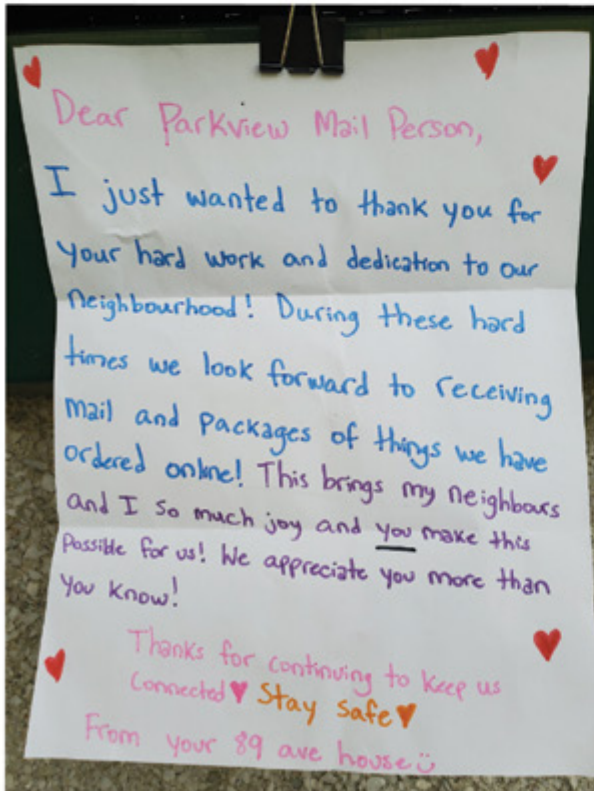 Dear Parkview Mail Person,
I just wanted to thank you for
your hard work and dedication to our
neighbourhood! During these hard
times we look forward to receiving
mail and packages of things we have
ordered online! This brings my neighbours
and I so much joy and you make this
possible for us! We appreciate you more than
you know!
Thanks for continuing to keep us
connected♥ Stay safe♥
From your 89 ave house